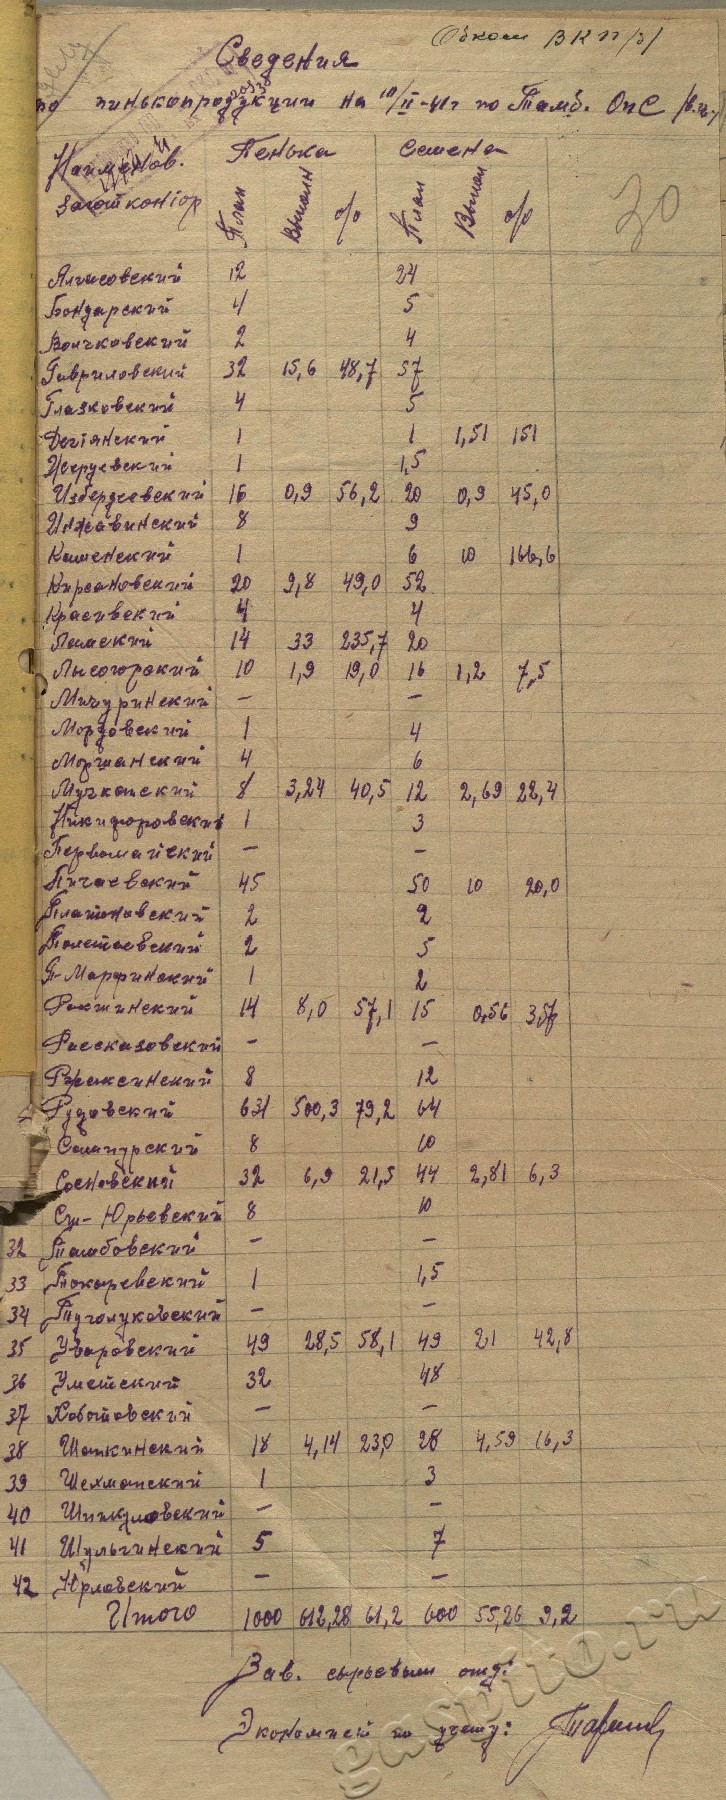 Обком ВКП/б/
Сведения
по пинькопродукции на 10/II-41г по Тамб. ОПС
30
Наименов. Пенька Семена
заготконтор План Выполн % План Выпол %
Алгасовский 12 24
Бондарский 4 5
Волчковский 2 4
Гавриловский 32 15,6 48,7 57
Глазковский 4 5
Дегтянский 1 1 1,51 151
Жердевский 1 1,5
Избердеевский 16 0,9 56,2 20 0,9 45,0
Инжавинский 8 9
Каменский 1 6 10 166,6
Кирсановский 20 9,8 49,0 52
Красивский 4 4
Ламский 14 33 235,7 20
Лысогорский 10 1,9 19,0 16 1,2 7,5
Мичуринский — —
Мордовский 1 4
Моршанский 4 6
Мучкапский 8 3,24 40,5 12 2,69 22,4
Никифоровский 1 3
Первомайский — —
Пичаевский 45 50 10 20,0
Платоновский 2 2
Полетаевский 2 5
П-Марфинский 1 2
Ракшинский 14 8,0 57,1 15 0,56 3,7
Рассказовский — —
Ржаксинский 8 12
Рудовский 631 500,3 79,2 64
Сампурский 8 10
Сосновский 32 6,9 21,5 44 2,81 6,3
Ст-Юрьевский 8 10
32 Тамбовский — —
33 Токаревский 1 1,5
34 Туголуковский — —
35 Уваровский 49 28,5 58,1 49 21 42,8
36 Уметский 32 48
37 Хоботовский — —
38 Шапкинский 18 4,14 23,0 28 4,59 16,3
39 Шехманский 1 3
40 Шпикуловский — —
41 Шульгинский 5 7
42 Юрловский — —
Итого 1000 612,28 61,2 600 55,26 9,2
Зав. сырьевым отд:
Экономист по учету:
gaspito.ru